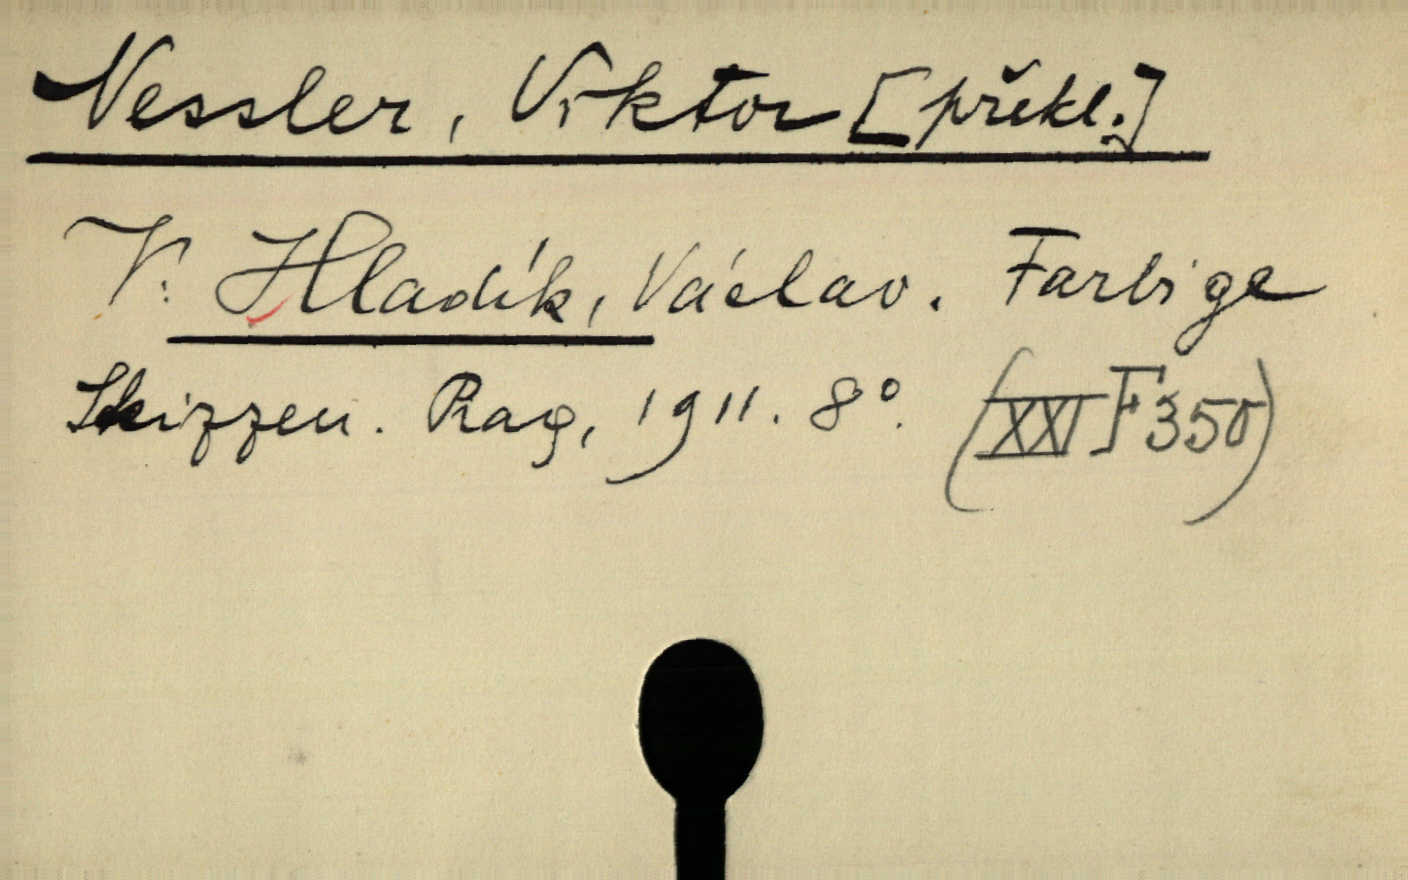 Nessler, Viktor [překl.]
V: Hladík, Václav. Farbige
Skizzen. Prag, 1911. 8°. (XXI F 350)